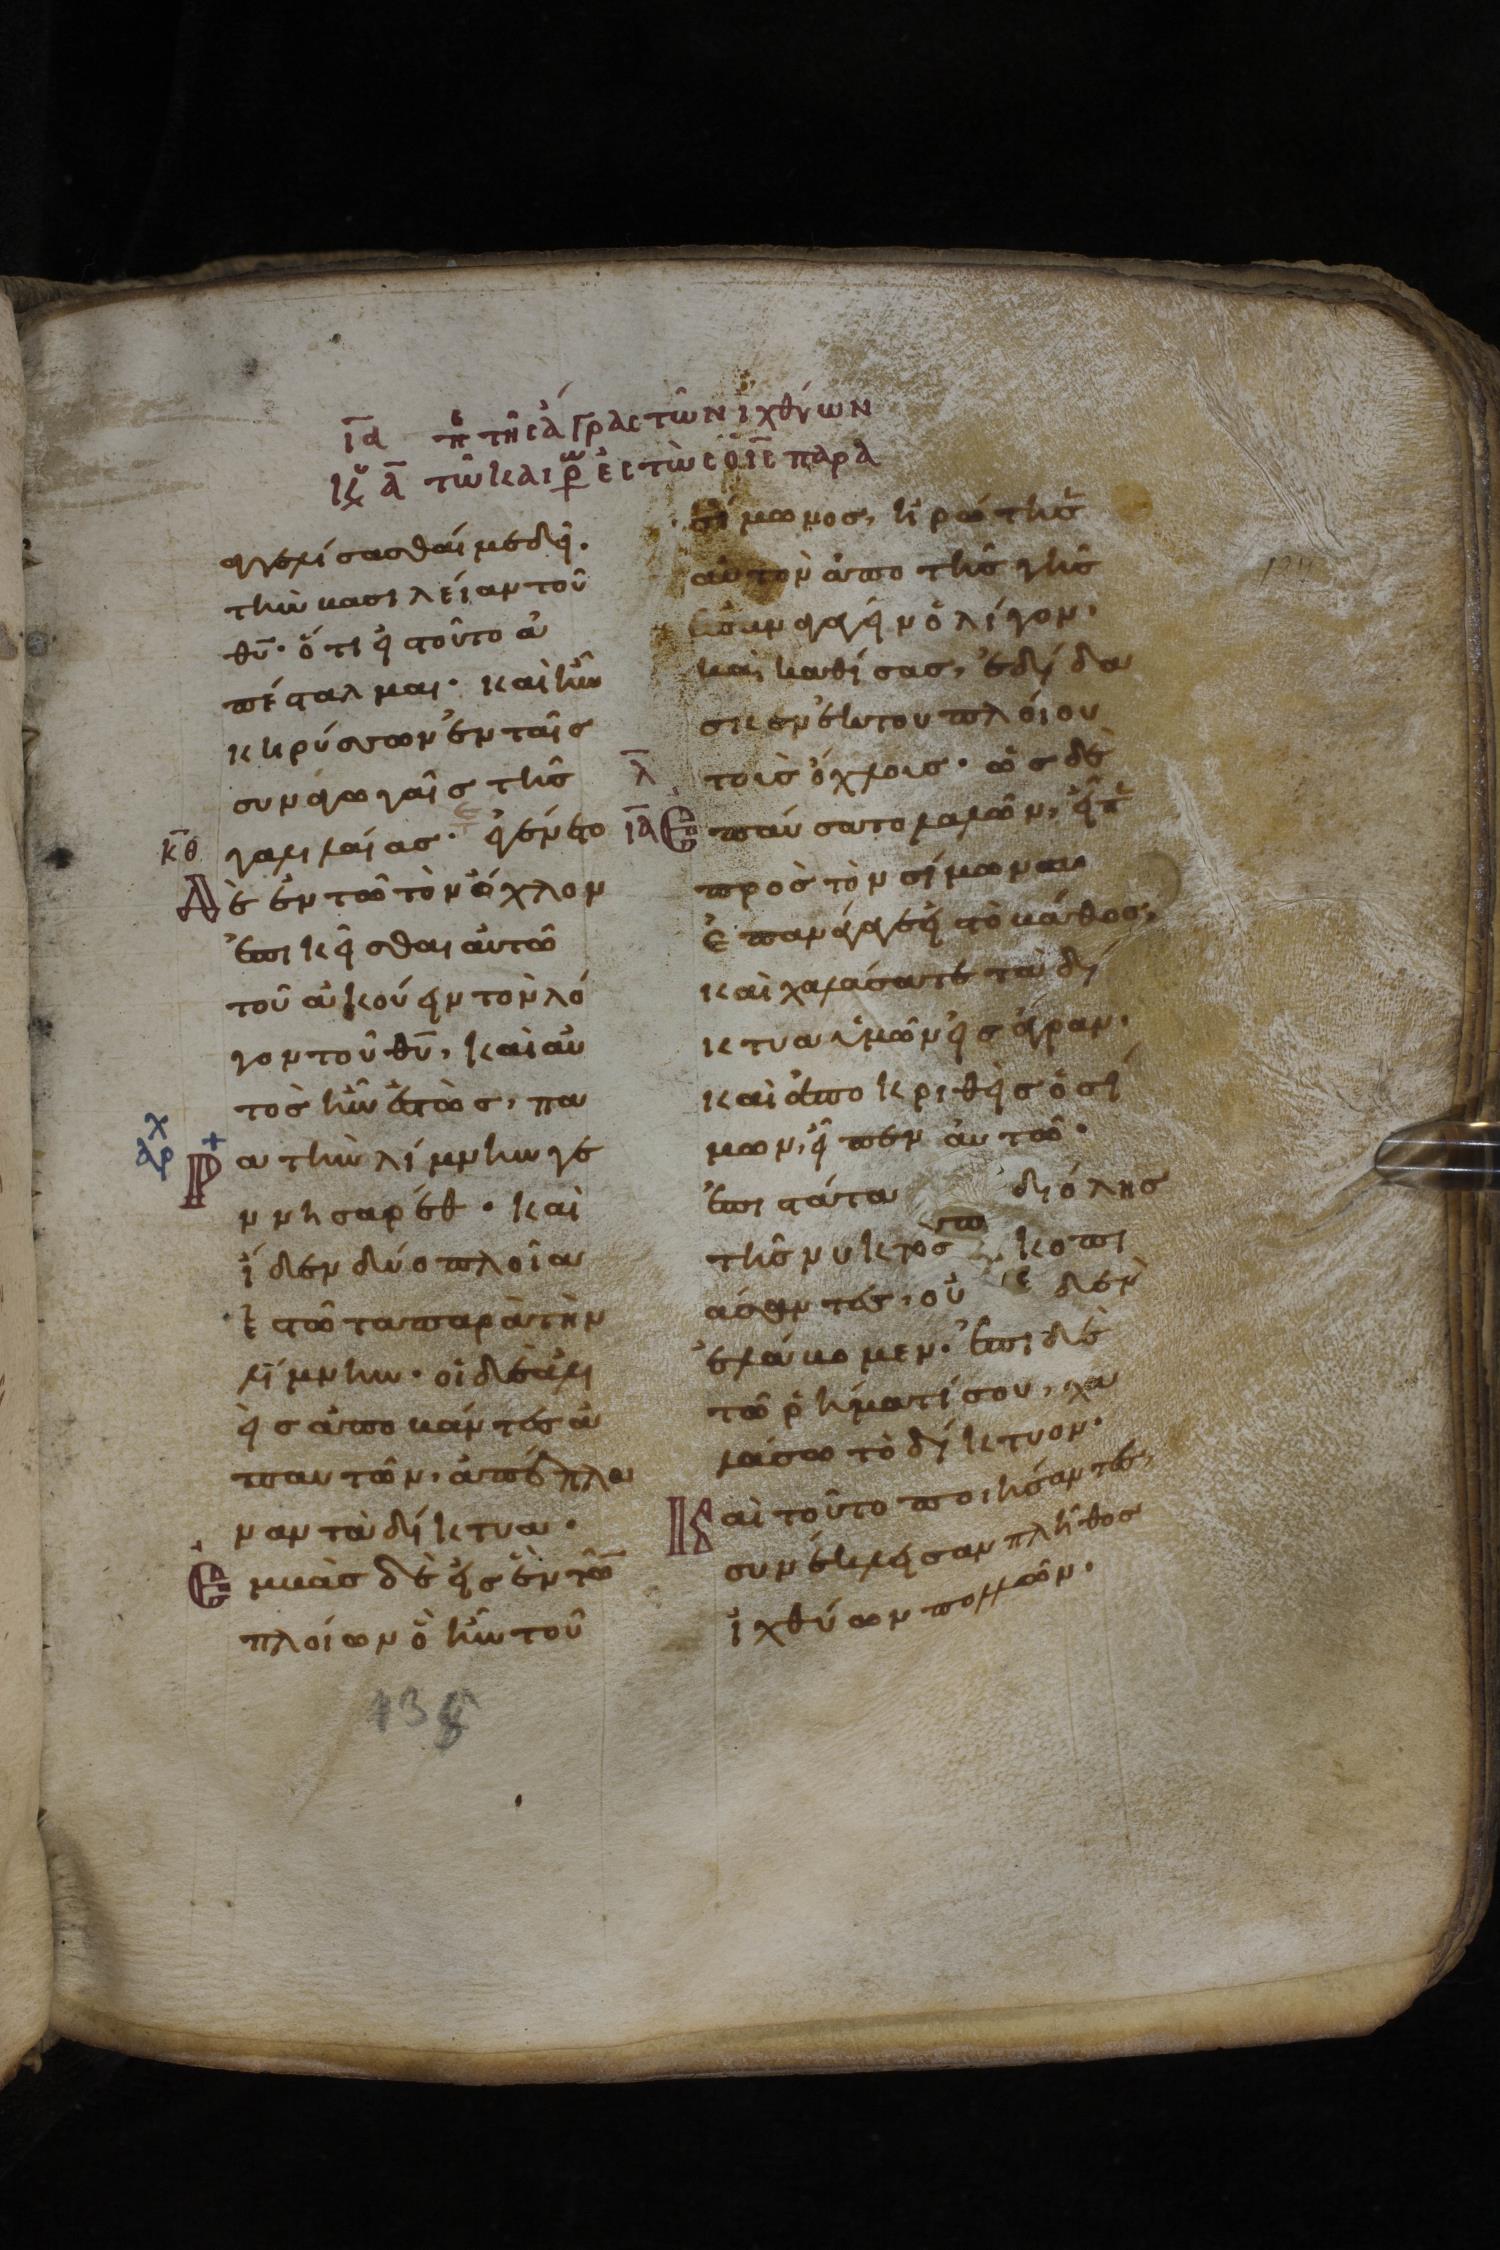 ῑα πε̑ τῆς ἄγρας τῶν ἰχθύων
Κυ ᾱ τῶ καιρῶ ἑστὼς ὁ ῑς παρὰ
αγγελίσασθαί με δεῖ·
τὴν βασιλείαν τοῦ
θῡ· ὅτι εἰς τοῦτο ἀ
πέσταλμαι· καὶ ἦν
κηρύσσων ἐν ταῖς
συναγωγαῖς τῆς
κ̄θ
γαλιλαίας· ἐγένετο
Δὲ ἐν τῶ τὸν ὄχλον
ἐπικεῖσθαι αὐτῶ
τοῦ ἀκούειν τὸν λό
γον τοῦ θῡ, καὶ αὐ
τὸς ἦν ἑστὼς, πα
αρχ
Ρα τὴν λίμνην γε
ννησαρέθ· καὶ
ἴδεν δύο πλοῖα
ἑστῶτα παρὰ τὴν
λίμνην· οἱ δὲ ἁλι
εῖς ἀποβάντες ἀ
π αυτῶν, ἀπέπλυ
ναν τὰ δίκτυα·
Ἐμβὰς δὲ εἰς ἓν τῶν
πλοίων ὃ ἦν τοῦ
σίμωνος, ἠρώτησεν
αὐτὸν ἀπο τῆς γῆς
ἐπαναγαγεῖν ὀλίγον·
καὶ καθίσας, ἐδίδα
σκεν ἐκ του πλοίου
λ̄
τοὺς ὄχλους· ὡς δὲ
ῑα
Ἐπαύσατο λαλῶν, εἶπεν
πρὸς τὸν σίμωνα
ἐπανάγαγε εἰς τὸ βάθος,
καὶ χαλάσατε τὰ δί
κτυα ὑμῶν εἰς ἄγραν·
καὶ ἀποκριθεὶς ὁ σί
μων, εἶπεν αὐτῶ·
ἐπιστάτα δι ὅλης
τῆς νυκτὸς κοπι
άσαντες, οὐδὲν
ἐλάβομεν· ἐπι δὲ
τῶ ῥήματί σου, χα
λάσω τὸ δίκτυον·
Καὶ τοῦτο ποιήσαντες,
συνέκλεισαν πλῆθος
ἰχθύων πολλῶν·
138